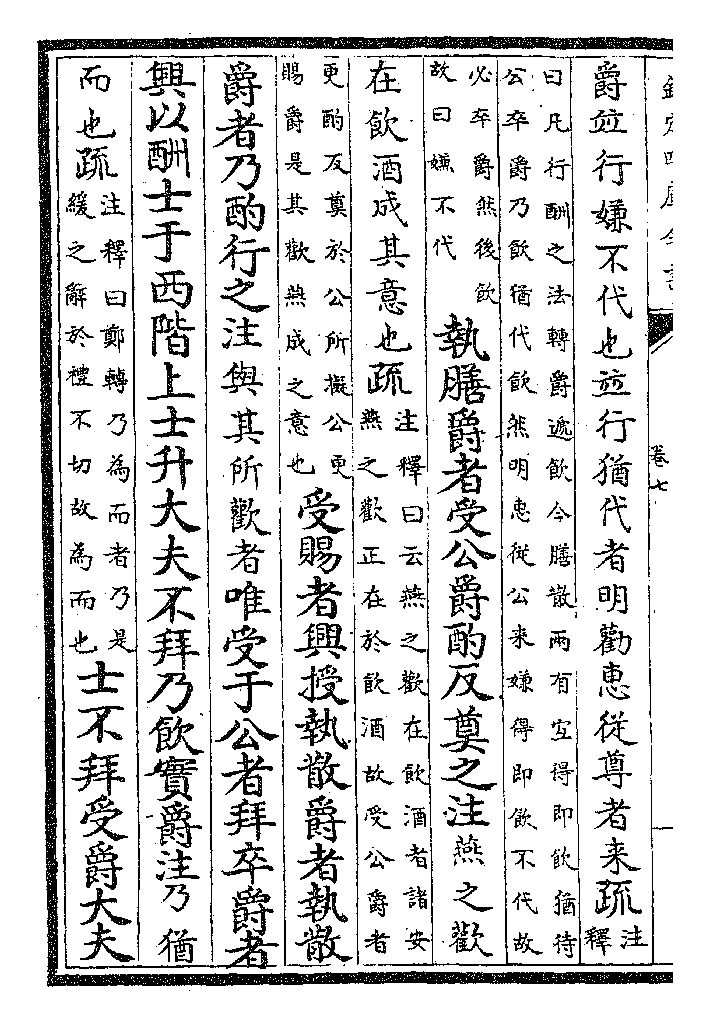 卷七
爵竝行嫌不代也竝行猶代者明勸惠從尊者来疏
注
釋
曰凡行酬之法轉爵遞飲今膳散兩有宜得即飲猶待
公卒爵乃飲猶代飲然明惠從公来嫌得即飲不代故
必卒爵然後飲
故曰嫌不代
執膳爵者受公爵酌反奠之注燕之歡
在飲酒成其意也疏
注釋曰云燕之歡在飲酒者諸安
燕之歡正在於飲酒故受公爵者
更酌反奠於公所擬公更
賜爵是其歡燕成之意也
受賜者興授執散爵者執散
爵者乃酌行之注與其所歡者唯受于公者拜卒爵者
興以酬士于西階上士升大夫不拜乃飲實爵注乃猶
而也疏
注釋曰鄭轉乃為而者乃是
緩之辭於禮不切故為而也
士不拜受爵大夫